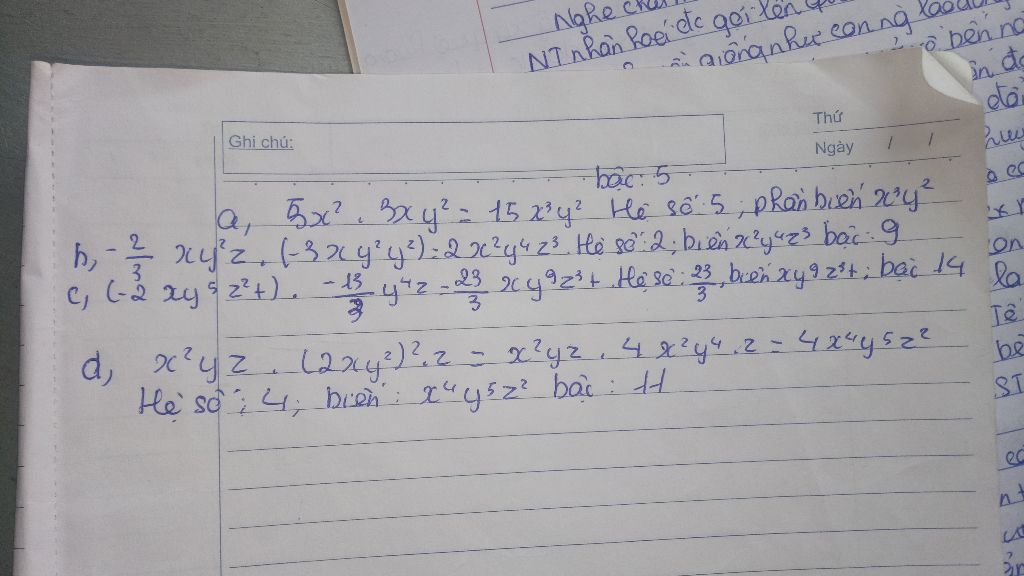 Nghe
NT nhân hoá đc gọi lên
giống như con ng lao động
bến
Thứ
Ghi chú:
Ngày / /
bậc: 5
a, 5x². 3xy² = 15x³y² Hệ số: 5; phần biến x³y²
b, -2/3 xy²z. (-3xy²y²) = 2x²y⁴z³. Hệ số: 2; biến x²y⁴z³ bậc: 9
c, (-2xy⁵z²t). -13/3 y⁴z = 23/3 xy⁹z³t. Hệ số: 23/3, biến xy⁹z³t; bậc 14
d, x²yz. (2xy²)².z = x²yz. 4x²y⁴.z = 4x⁴y⁵z²
Hệ số: 4; biến: x⁴y⁵z² bậc: 11